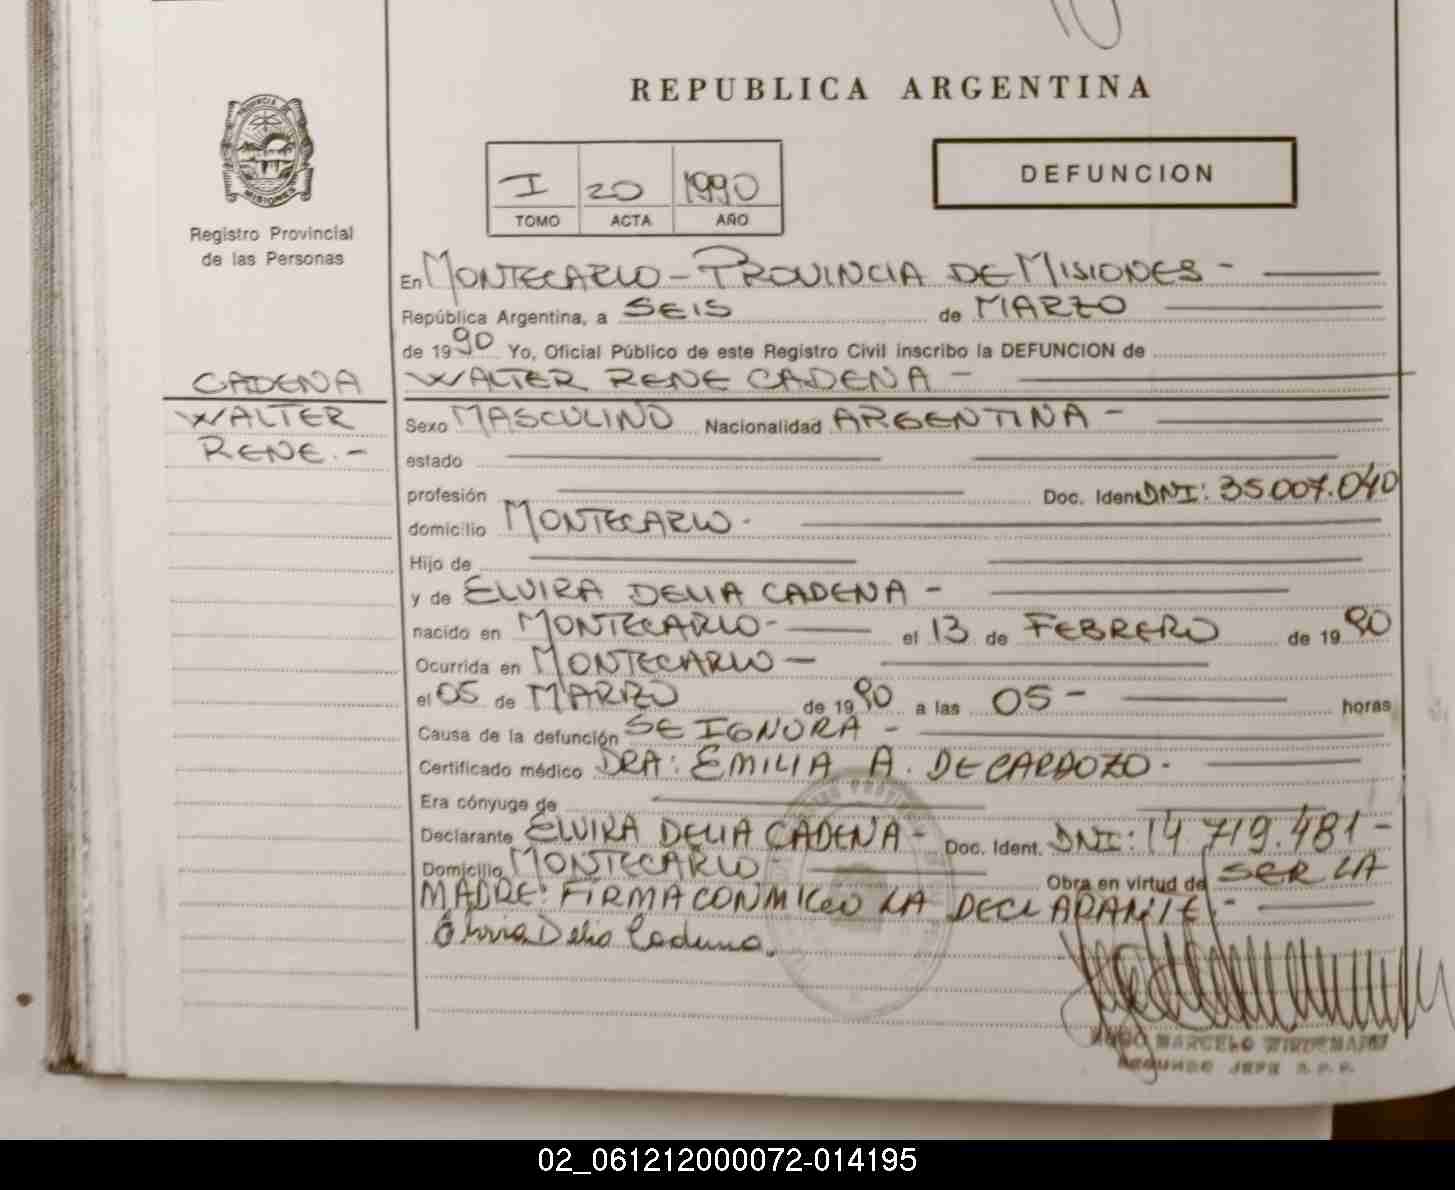 REPUBLICA ARGENTINA
PROVINCIA
MISIONES
Registro Provincial
de las Personas
I 20 1990
TOMO ACTA AÑO
DEFUNCION
En MONTECARLO - PROVINCIA DE MISIONES -
República Argentina, a SEIS de MARZO
de 1990 Yo, Oficial Público de este Registro Civil inscribo la DEFUNCION de
CADENA
WALTER
RENE.-
WALTER RENE CADENA -
Sexo MASCULINO Nacionalidad ARGENTINA -
estado
profesión Doc. Ident. DNI: 35.007.040
domicilio MONTECARLO.
Hijo de
y de ELVIRA DELIA CADENA -
nacido en MONTECARLO- el 13 de FEBRERO de 1990
Ocurrida en MONTECARLO -
el 05 de MARZO de 1990 a las 05 - horas
Causa de la defunción SE IGNORA -
Certificado médico DRA: EMILIA A. DE CARDOZO.
Era cónyuge de
Declarante ELVIRA DELIA CADENA - Doc. Ident. DNI: 14.719.481 -
Domicilio MONTECARLO - Obra en virtud de SER LA
MADRE: FIRMA CONMIGO LA DECLARANTE.-
Elvira Delia Cadena.
MARCELO
SEGUNDO JEFE R.P.P.
02_061212000072-014195